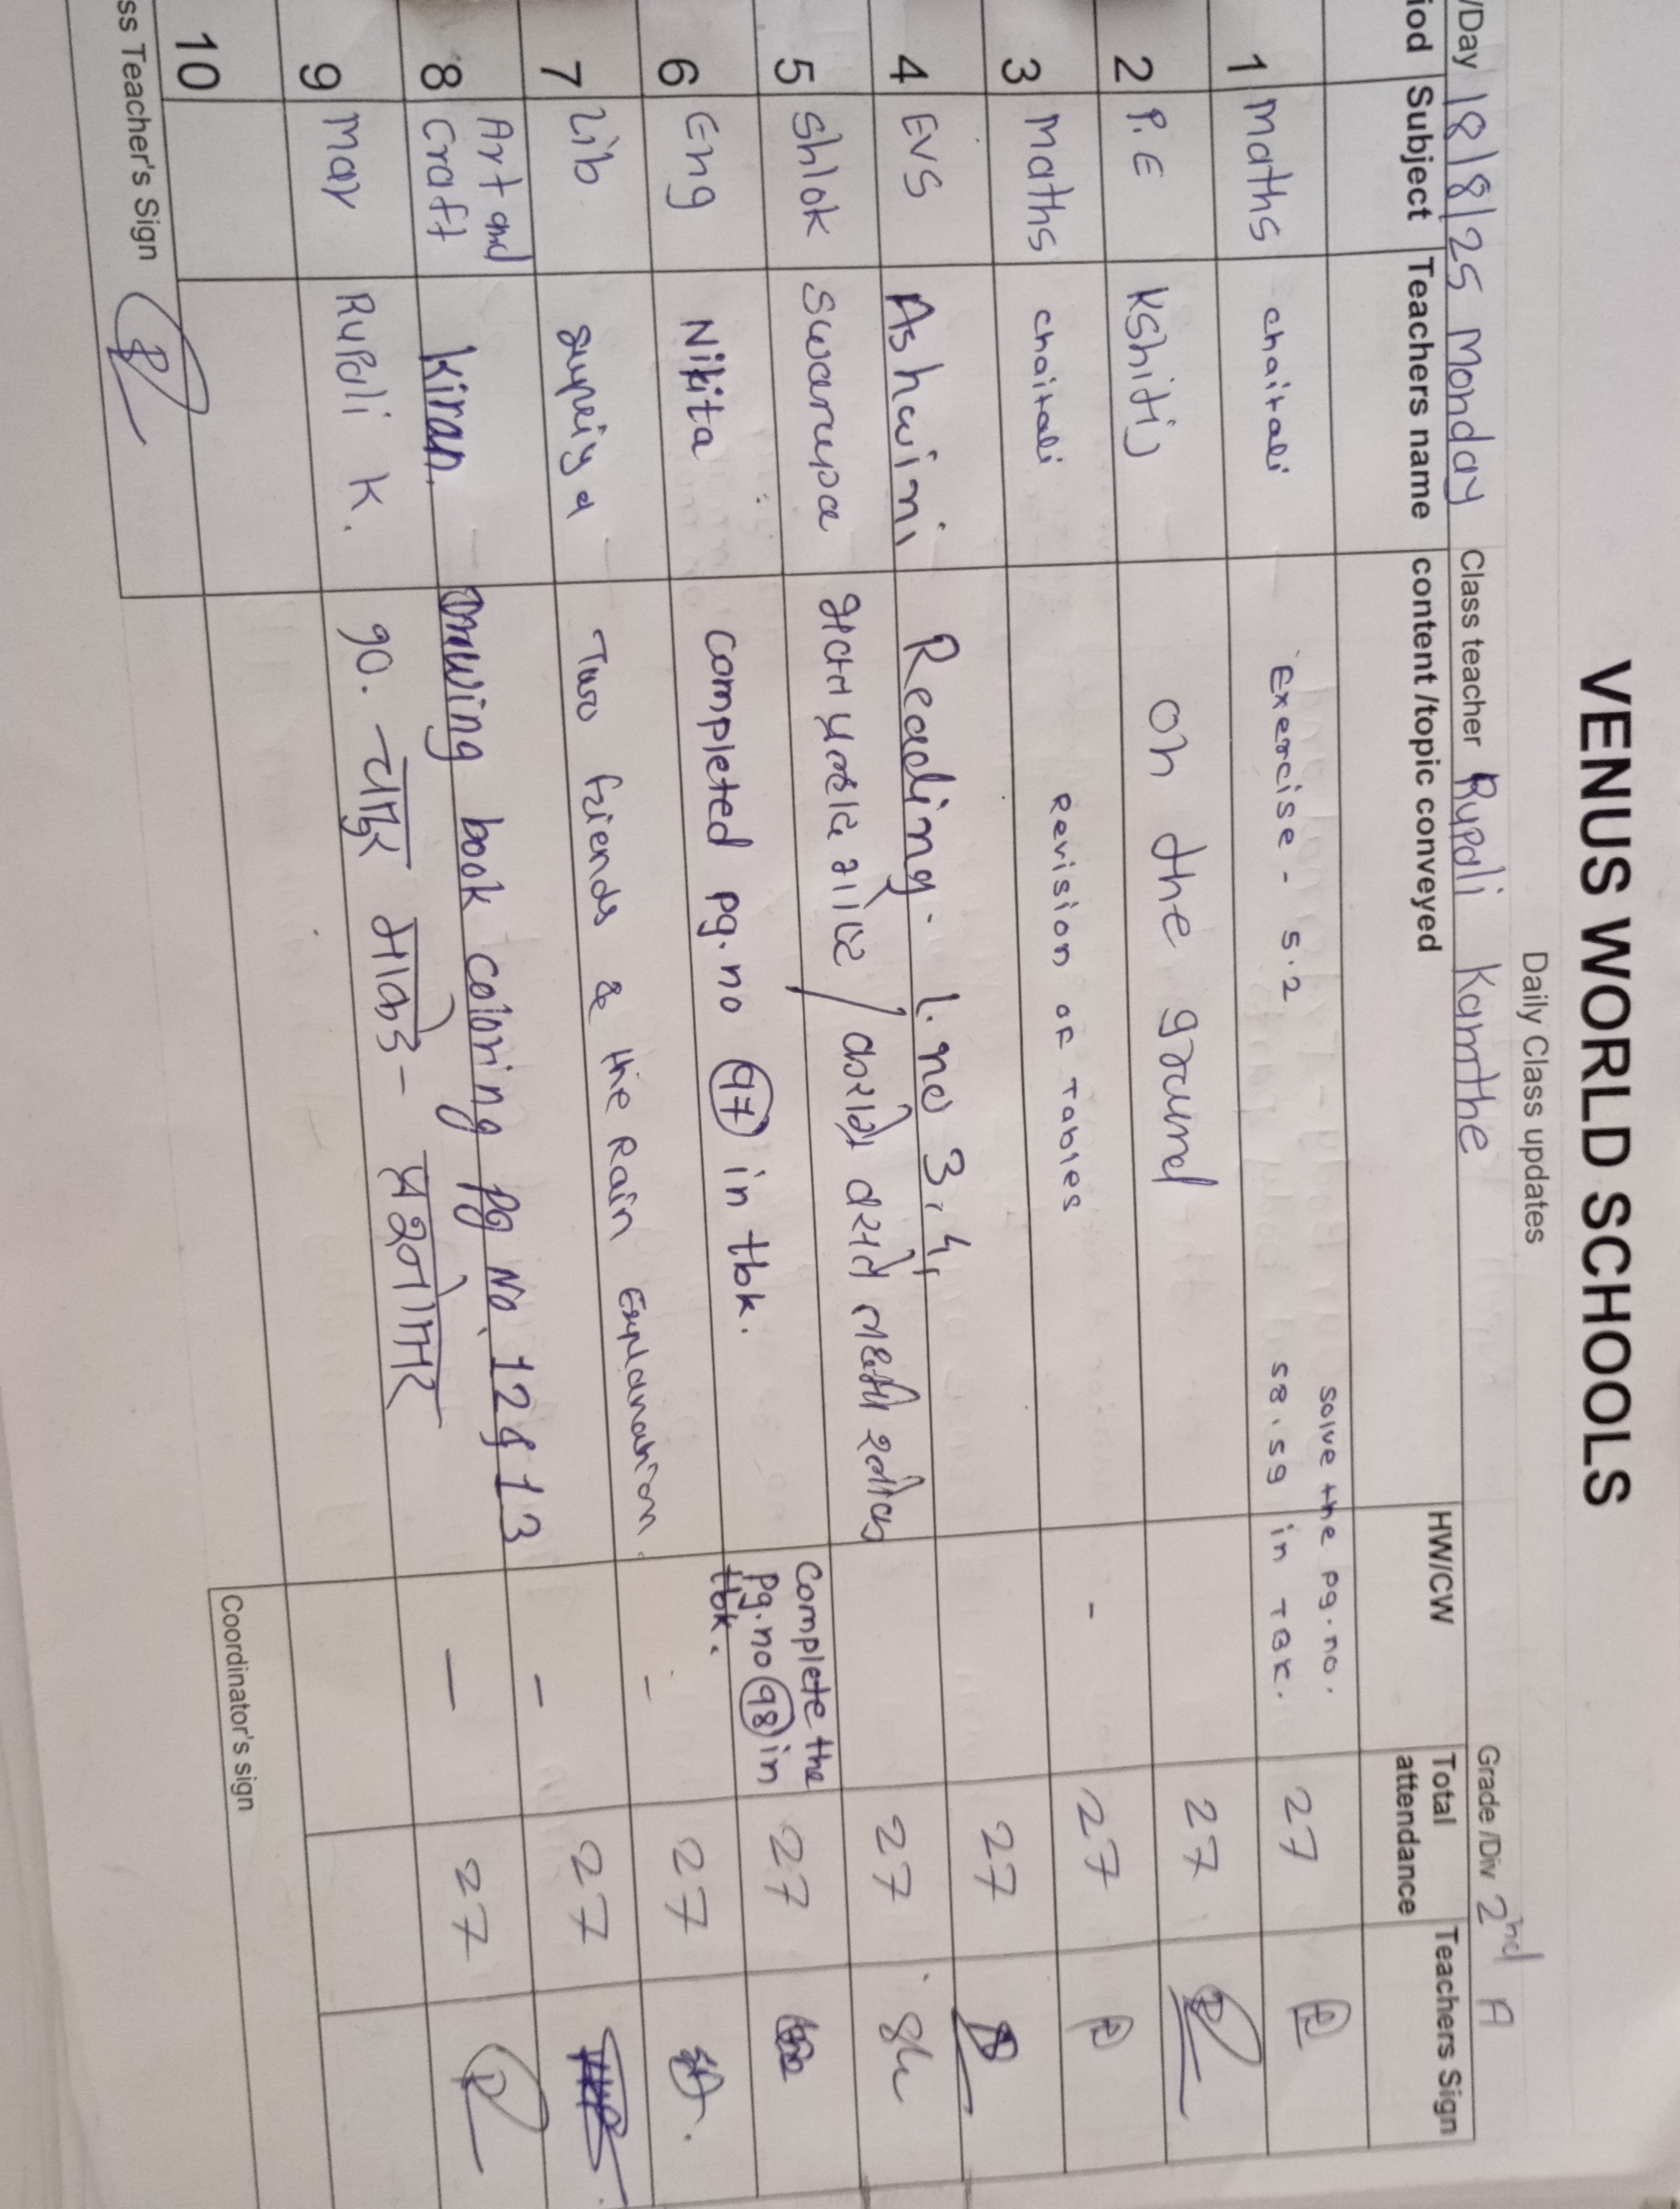 VENUS WORLD SCHOOLS
Daily Class updates
/Day 18/8/25 Monday Class teacher Rupali Kamthe Grade /Div 2nd A
iod Subject Teachers name content /topic conveyed HW/CW Total attendance Teachers Siign
1 Maths chaitali Exercise - 5.2 solve the pg.no. 58.59 in TBK. 27
2 P.E Kshitij on the ground 27
3 Maths chaitali Revision of Tables - 27
4 EVS Ashwini Reading. l. no 3, 4, 27
5 Shlok Swarupa / 27
6 Eng Nikita completed pg.no 97 in tbk. Complete the pg.no 98 in tbk. 27
7 Lib supriya Two friends & the Rain Explanation. - 27
8 Art and Craft Kiran Drawing book coloring pg No. 12 & 13 - 27
9 Mar Rupali K. १०. - - 27
10
ss Teacher's Sign Coordinator's sign